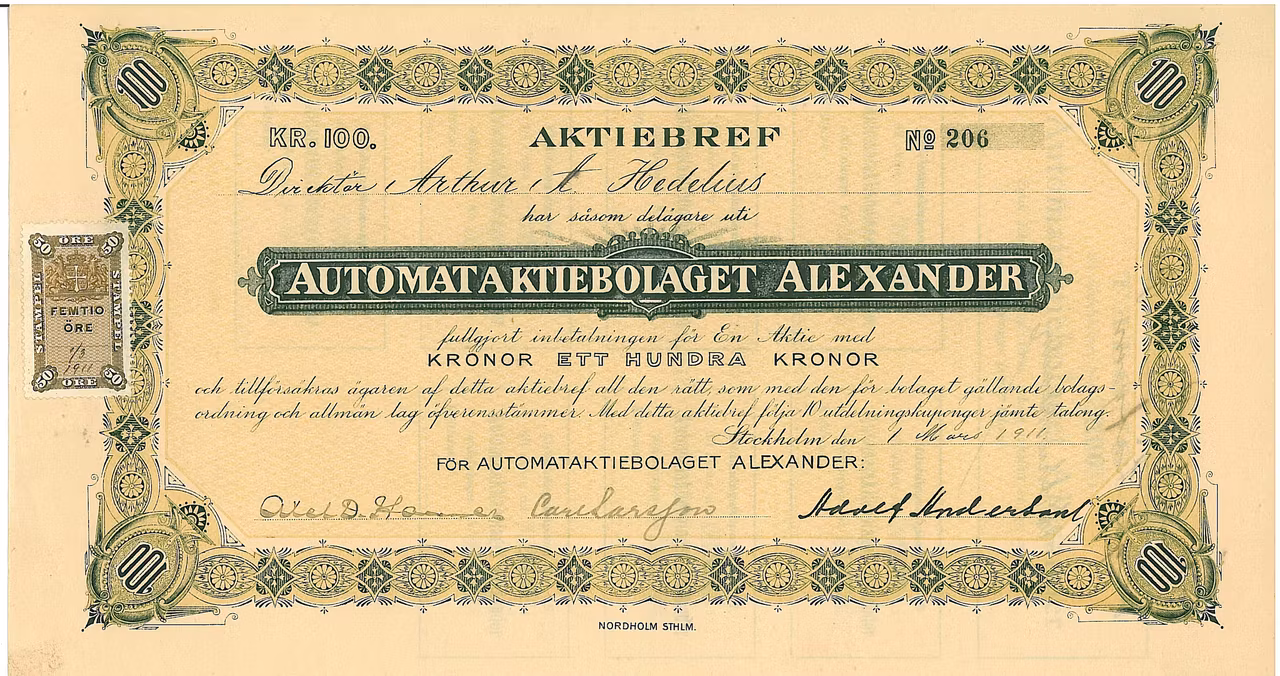 100
100
KR. 100.
AKTIEBREF
No 206
Direktör Arthur A Hedelius
har såsom delägare uti
AUTOMATAKTIEBOLAGET ALEXANDER
fullgjort inbetalningen för En Aktie med
KRONOR ETT HUNDRA KRONOR
och tillförsäkras ägaren af detta aktiebref all den rätt, som med den för bolaget gällande bolags-
ordning och allmän lag öfverensstämmer. Med detta aktiebref följa 10 utdelningskuponger jämte talong.
Stockholm den 1 Mars 1911.
FÖR AUTOMATAKTIEBOLAGET ALEXANDER:
Axel D. Carl Larsson Adolf
50 ÖRE 50
STÄMPEL
STÄMPEL
FEMTIO
ÖRE
1/3
1911
50 ÖRE 50
100
100
NORDHOLM STHLM.